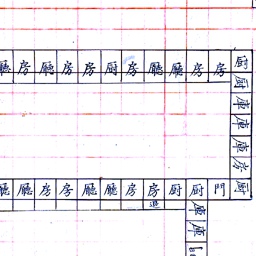 廳房廳房房厨房廳廳房房厨
厨
庫
庫
庫
房
廳廳房房廳廳房房厨厨門厨
進
庫
庫